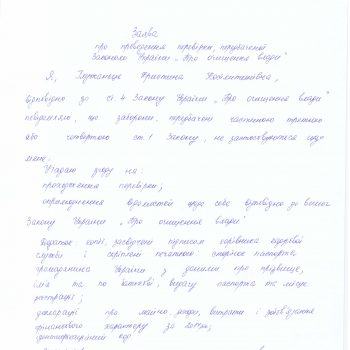 Заява
про проведення перевірки, передбаченої
Законом України „Про очищення влади"
Я, Кристина
відповідно до ст. 4 Закону України „Про очищення влади"
повідомляю, що заборони, передбачені частиною третьою
або четвертою ст. 1 Закону, не застосовуються щодо
мене.
Надаю згоду на:
проходження перевірки;
оприлюднення відомостей щодо себе відповідно до вимог
Закону України „Про очищення влади"
Додатки: копії, засвідчені підписом керівника кадрової
служби і скріплені печаткою: сторінок паспорта
громадянина України з даними про прізвище,
ім'я та по батькові, видачу паспорта та місце
реєстрації;
декларації про майно, доходи, витрати і зобов'язання
фінансового характеру за